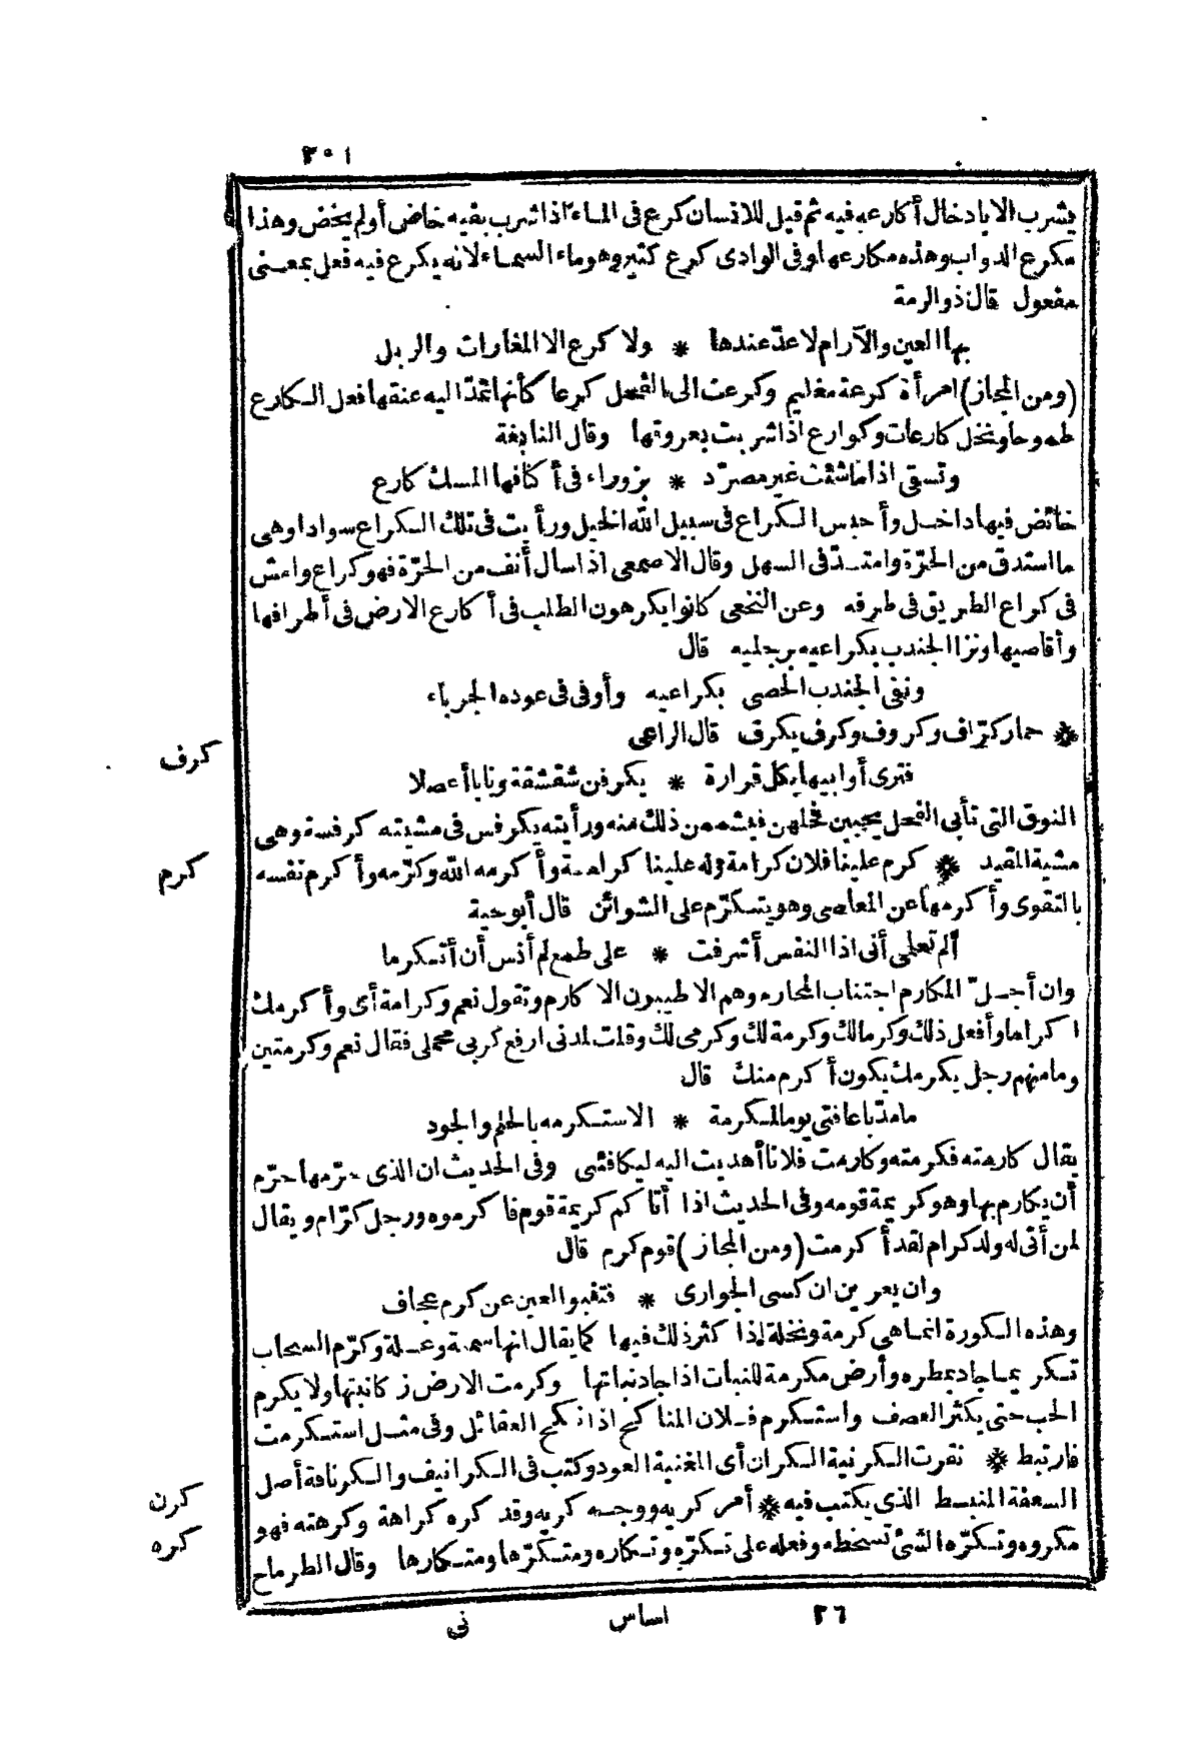 ٢٠١
يشرب الا بادخال أكارعه فيه ثم قيل للانسان كرع في الماء اذا شرب بفيه خاض أو لم يخض وهذا
مكرع الدواب وهذه مكارعها وفي الوادى كرع كثير وهو ماء السماء لانه يكرع فيه فعل بمعنى
مفعول قال ذو الرمة
بها العين والآرام لا عدّ عندها * ولا كرع الا المغارات والربل
(ومن المجاز) امرأة كرعة مغليم وكرعت الى الفحل كرعا كأنها تمدّ اليه عنقها فعل الكارع
طموحا ونخل كارعات وكوارع اذا شربت بعروقها وقال النابغة
وتسقى اذا ما شئت غير مصرّد * بزوراء في أكنافها المسك كارع
خائض فيها داخل وأحبس الكراع في سبيل الله الخيل ورأيت في تلك الكراع سوادا وهى
ما استدق من الحرّة وامتدّ في السهل وقال الاصمعى اذا سال أنف من الحرّة فهو كراع وامش
في كراع الطريق في طرفه وعن النخعى كانوا يكرهون الطلب في أكارع الارض في أطرافها
وأقاصيها ونزا الجندب بكراعيه برجليه قال
ونفى الجندب الحصى بكراعيه وأوفى في عوده الحرباء
* حمار كرّاف وكروف وكرف يكرف قال الراعى
كرف
فترى أوابيها بكل قرارة * يكرفن شقشقة ونابا أعصلا
النوق التي تأبى الفحل يجبين فحلهن فيشمن ذلك منه ورأيته يكرفس في مشيته كرفسة وهى
مشية المقيد * كرم علينا فلان كرامة وله علينا كرامة وأكرمه الله وكرّمه وأكرم نفسه
كرم
بالتقوى وأكرمها عن المعاصى وهو يتكرّم على الشوائن قال أبو حية
ألم تعلمى أنى اذا النفس أشرفت * على طمع لم أنس أن أتكرما
وان أجلّ المكارم اجتناب المحارم وهم الاطيبون الاكارم وتقول نعم وكرامة أى وأكرمك
اكراما وأفعل ذلك وكرما لك وكرمة لك وكرمى لك وقلت لمدنى ارفع كربي محملى فقال نعم وكرمتين
وما منهم رجل يكرمك يكون أكرم منك قال
مامدّ باعا فتى يوما لمكرمة * الا ستكرمه بالحلم والجود
يقال كارمته فكرمته وكارمت فلانا أهديت اليه ليكافئنى وفي الحديث ان الذى حرّمها حرّم
أن يكارم بها وهو كريمة قومه وفي الحديث اذا أتاكم كريمة قوم فاكرموه ورجل كرّام ويقال
لمن أتى له ولد كرام لقد أكرمت (ومن المجاز) قوم كرم قال
وان يعرين ان كسى الجوارى * فتنبو العين عن كرم عجاف
وهذه الكورة انما هى كرمة ونخلة اذا كثر ذلك فيها كما يقال انها سمنة وعسلة وكرّم السحاب
تكريما جاد بمطره وأرض مكرمة للنبات اذا جاد نباتها وكرمت الارض زكا نبتها ولا يكرم
الحب حتى يكثر العصف واستكرم فلان المناكح اذا نكح العقائل وفي مثل استكرمت
فارتبط * نقرت الكرنية الكران أى المغنية العود وكتب في الكرانيف والكرنافة أصل
السعفة المنبسط الذى يكتب فيه * أمر كريه ووجه كريه وقد كره كراهة وكرهته فهو
كرن
مكروه وتكرّه الشئ تسخطه وفعله على تكرّه وتكاره ومتكرّها ومتكارها وقال الطرماح
كره
٢٦ اساس نى